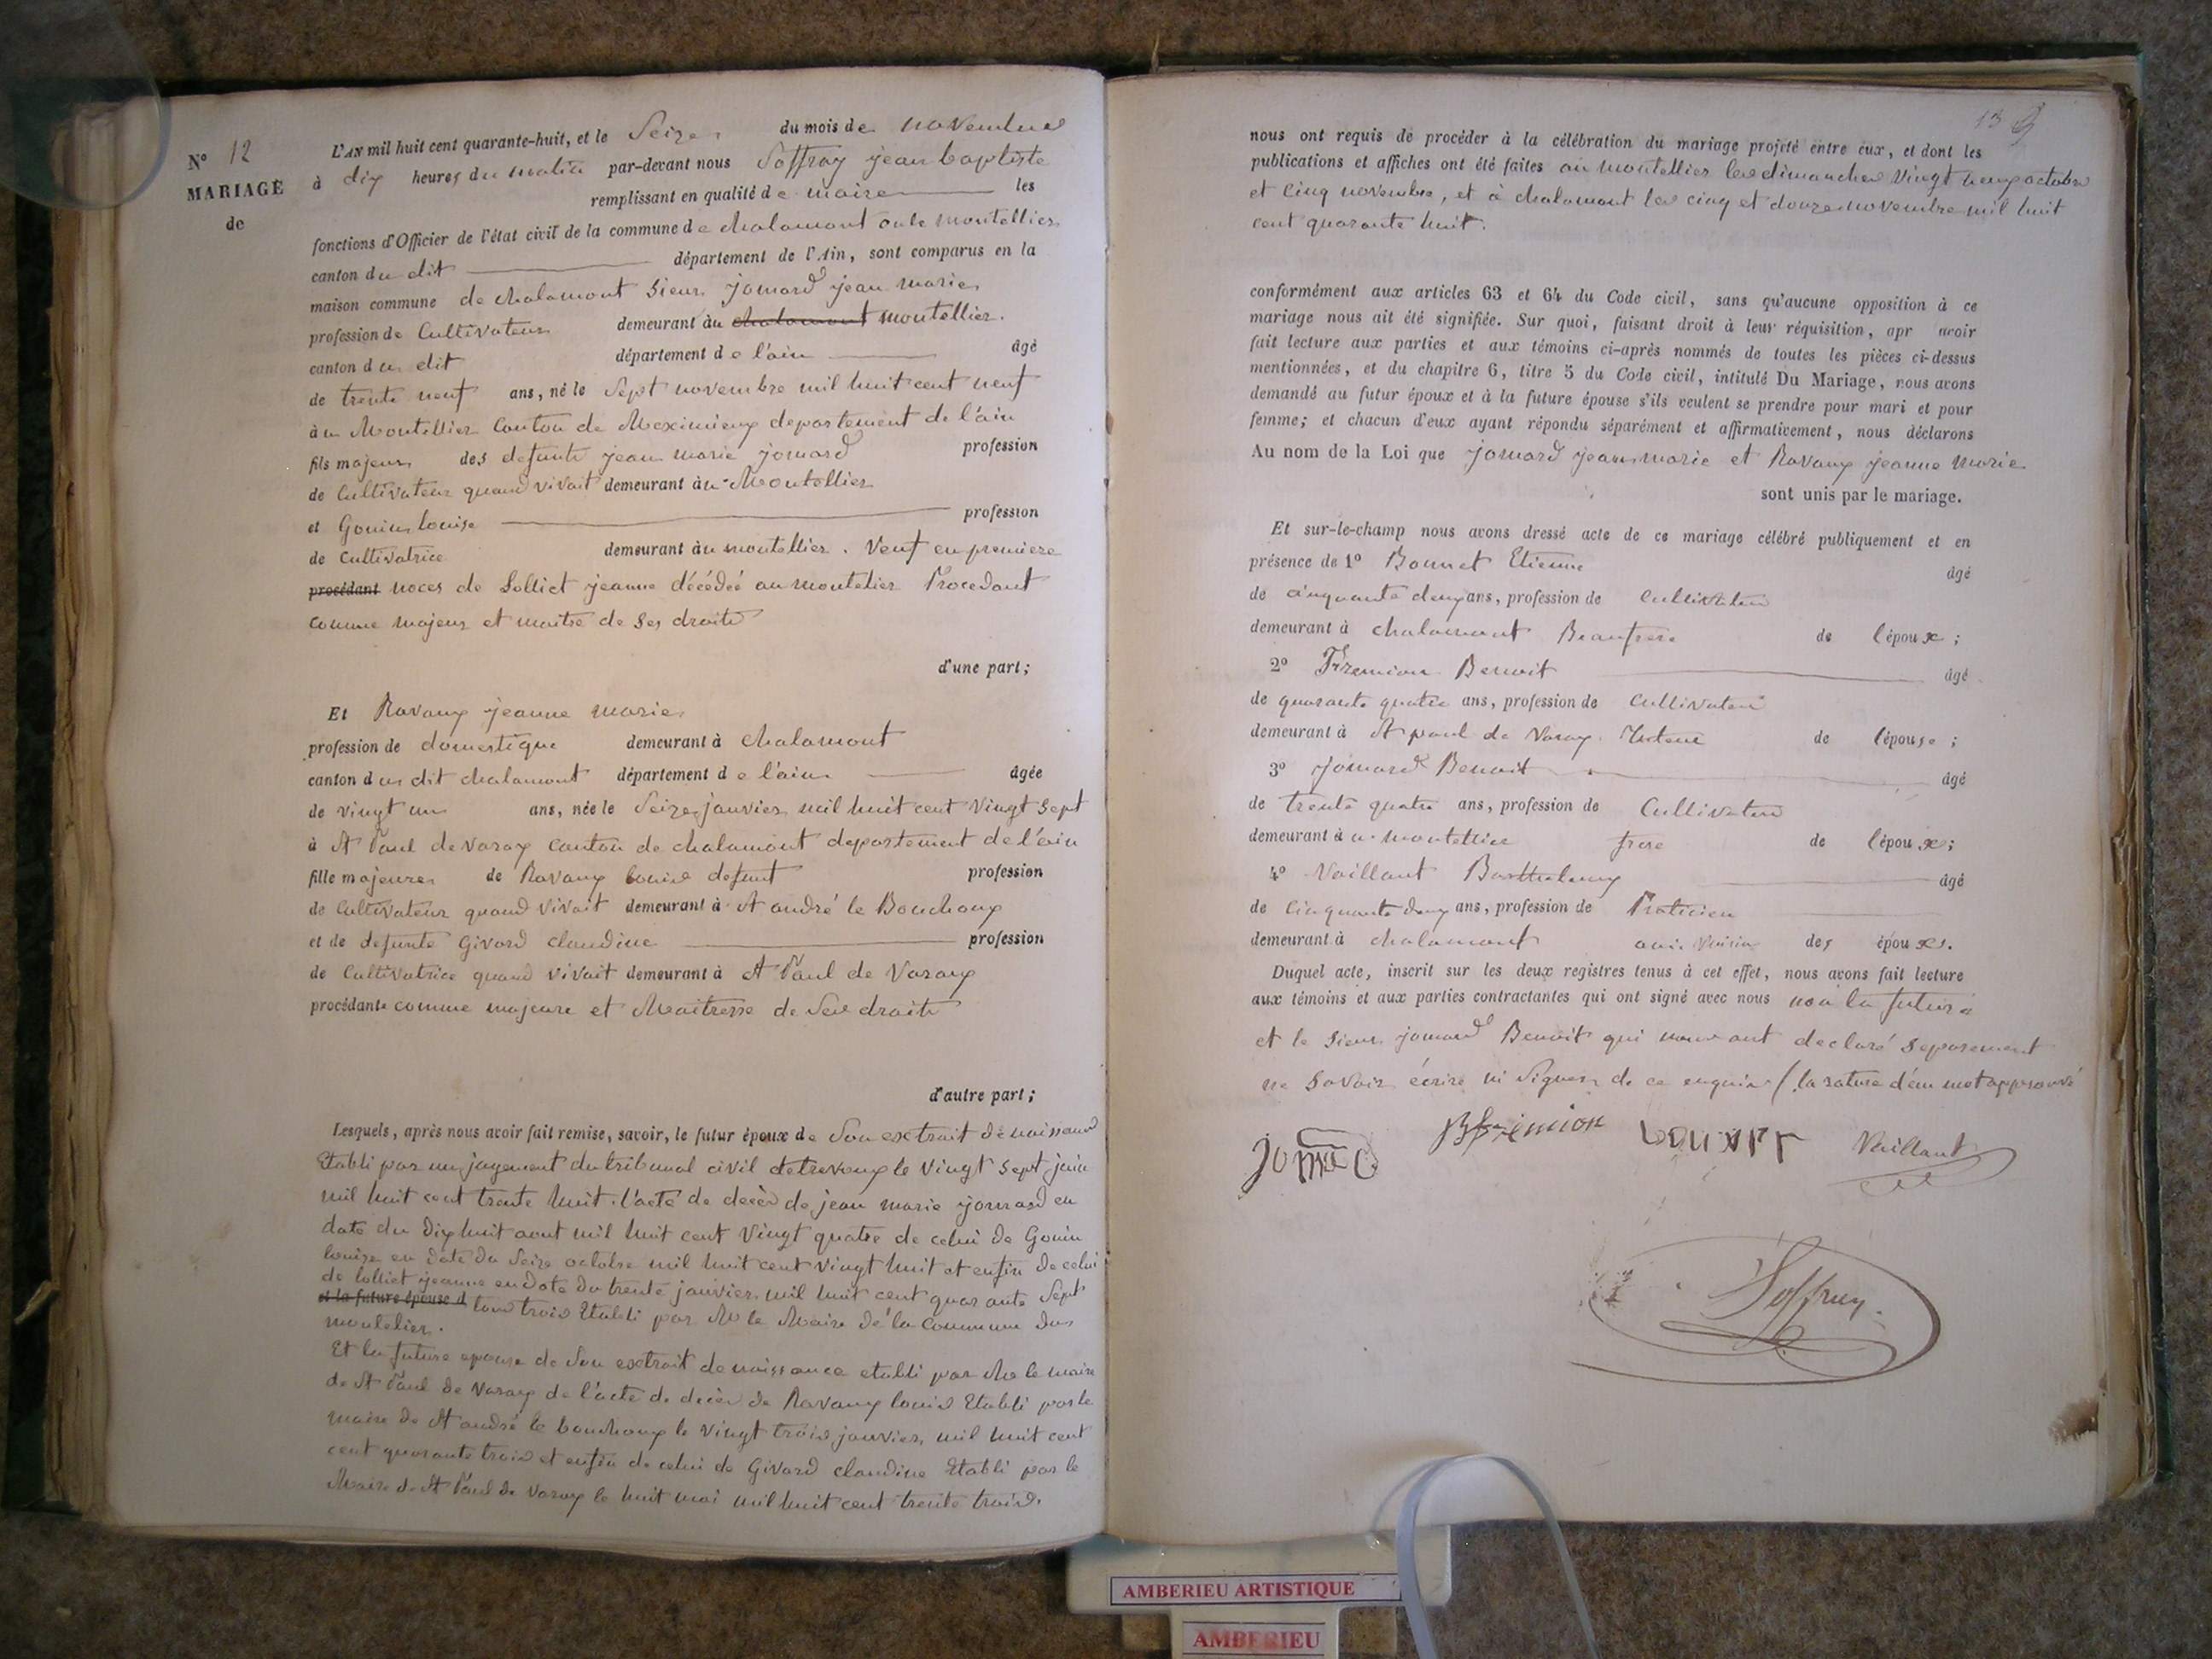 N° 12
MARIAGE
de
L'AN mil huit cent quarante-huit, et le Seize du mois de novembre
à dix heures du matin par-devant nous Soffray jean baptiste
remplissant en qualité de maire les
fonctions d'Officier de l'état civil de la commune de chalamont
canton du dit département de l'Ain, sont comparus en la
maison commune de chalamont Sieur jomard jean marie
profession de Cultivateur demeurant au chalamont montellier.
canton du dit département de l'ain âgé
de trente neuf ans, né le Sept novembre mil huit cent neuf
à u Montellier Canton de Meximieux departement de l'ain
fils majeur des defunts jean marie jomard profession
de Cultivateur quand vivait demeurant àu Montellier
et Gouin louise profession
de Cultivatrice demeurant àu montellier. Veuf en premiere
procédant noces de Lolliet jeanne décédée au montelier Procedant
comme majeur et maitre de ses droits
d'une part;
Et Ravaux jeanne marie
profession de domestique demeurant à chalamont
canton du dit chalamont département de l'ain âgée
de vingt un ans, née le Seize janvier mil huit cent vingt sept
à St Paul de Varax canton de chalamont departement de l'ain
fille majeure de Ravaux louis defunt profession
de Cultivateur quand vivait demeurant à St andré le Bouchoux
et de defunte Givord claudine profession
de Cultivatrice quand vivait demeurant à St Paul de Varax
procédante comme majeure et Maitresse de Ses droits
d'autre part;
Lesquels, après nous avoir fait remise, savoir, le futur époux de Son extrait de naissance
Etabli par un jugement du tribunal civil de trevoux le vingt sept juin
mil huit cent trente huit. l'acte de decès de jean marie jomard en
date du dix huit aout mil huit cent vingt quatre de celui de Gouin
louise en date du Seize octobre mil huit cent vingt huit et enfin de celui
de lolliet jeanne en date du trente janvier mil huit cent quarante Sept
et la future épouse d tous trois Etabli par Mr le Maire de la Commune du
montelier.
Et la future epouse de Son extrait de naissance etabli par Mr le maire
de St Paul de Varax de l'acte de decès de Ravaux louis Etabli par le
maire de St andré le bouchoux le vingt trois janvier mil huit cent
cent quarante trois et enfin de celui de Givord claudine Etabli par le
Maire de St Paul de Varax le huit mai mil huit cent trente trois.
13
nous ont requis de procéder à la célébration du mariage projeté entre eux, et dont les
publications et affiches ont été faites au montellier les dimanches Vingt neuf octobre
et Cinq novembre, et à chalamont les cinq et douze novembre mil huit
cent quarante huit.
conformément aux articles 63 et 64 du Code civil, sans qu'aucune opposition à ce
mariage nous ait été signifiée. Sur quoi, faisant droit à leur réquisition, apr avoir
fait lecture aux parties et aux témoins ci-après nommés de toutes les pièces ci-dessus
mentionnées, et du chapitre 6, titre 5 du Code civil, intitulé Du Mariage, nous avons
demandé au futur époux et à la future épouse s'ils veulent se prendre pour mari et pour
femme; et chacun d'eux ayant répondu séparément et affirmativement, nous déclarons
Au nom de la Loi que jomard jean marie et Ravaux jeanne marie
sont unis par le mariage.
Et sur-le-champ nous avons dressé acte de ce mariage célébré publiquement et en
présence de 1° Bonnet Etienne âgé
de cinquante deux ans, profession de Cultivateur
demeurant à chalamont Beaufrere de l'époux;
2° Fremion Benoit âgé
de quarante quatre ans, profession de Cultivateur
demeurant à St paul de Varax. Tuteur de l'épouse;
3° jomard Benoit âgé
de trente quatre ans, profession de Cultivateur
demeurant à u montellier frere de l'époux;
4° Vaillant Barthelemy âgé
de Cinquante deux ans, profession de Praticien
demeurant à chalamont voisin des époux.
Duquel acte, inscrit sur les deux registres tenus à cet effet, nous avons fait lecture
aux témoins et aux parties contractantes qui ont signé avec nous non la future
et le Sieur jomard Benoit qui nous ont declaré Separement
ne Savoir écrire ni Signer de ce enquis / la rature d'un mot approuvé
jomard Bfremion bonnet Vaillant
Soffray
AMBERIEU ARTISTIQUE
AMBERIEU